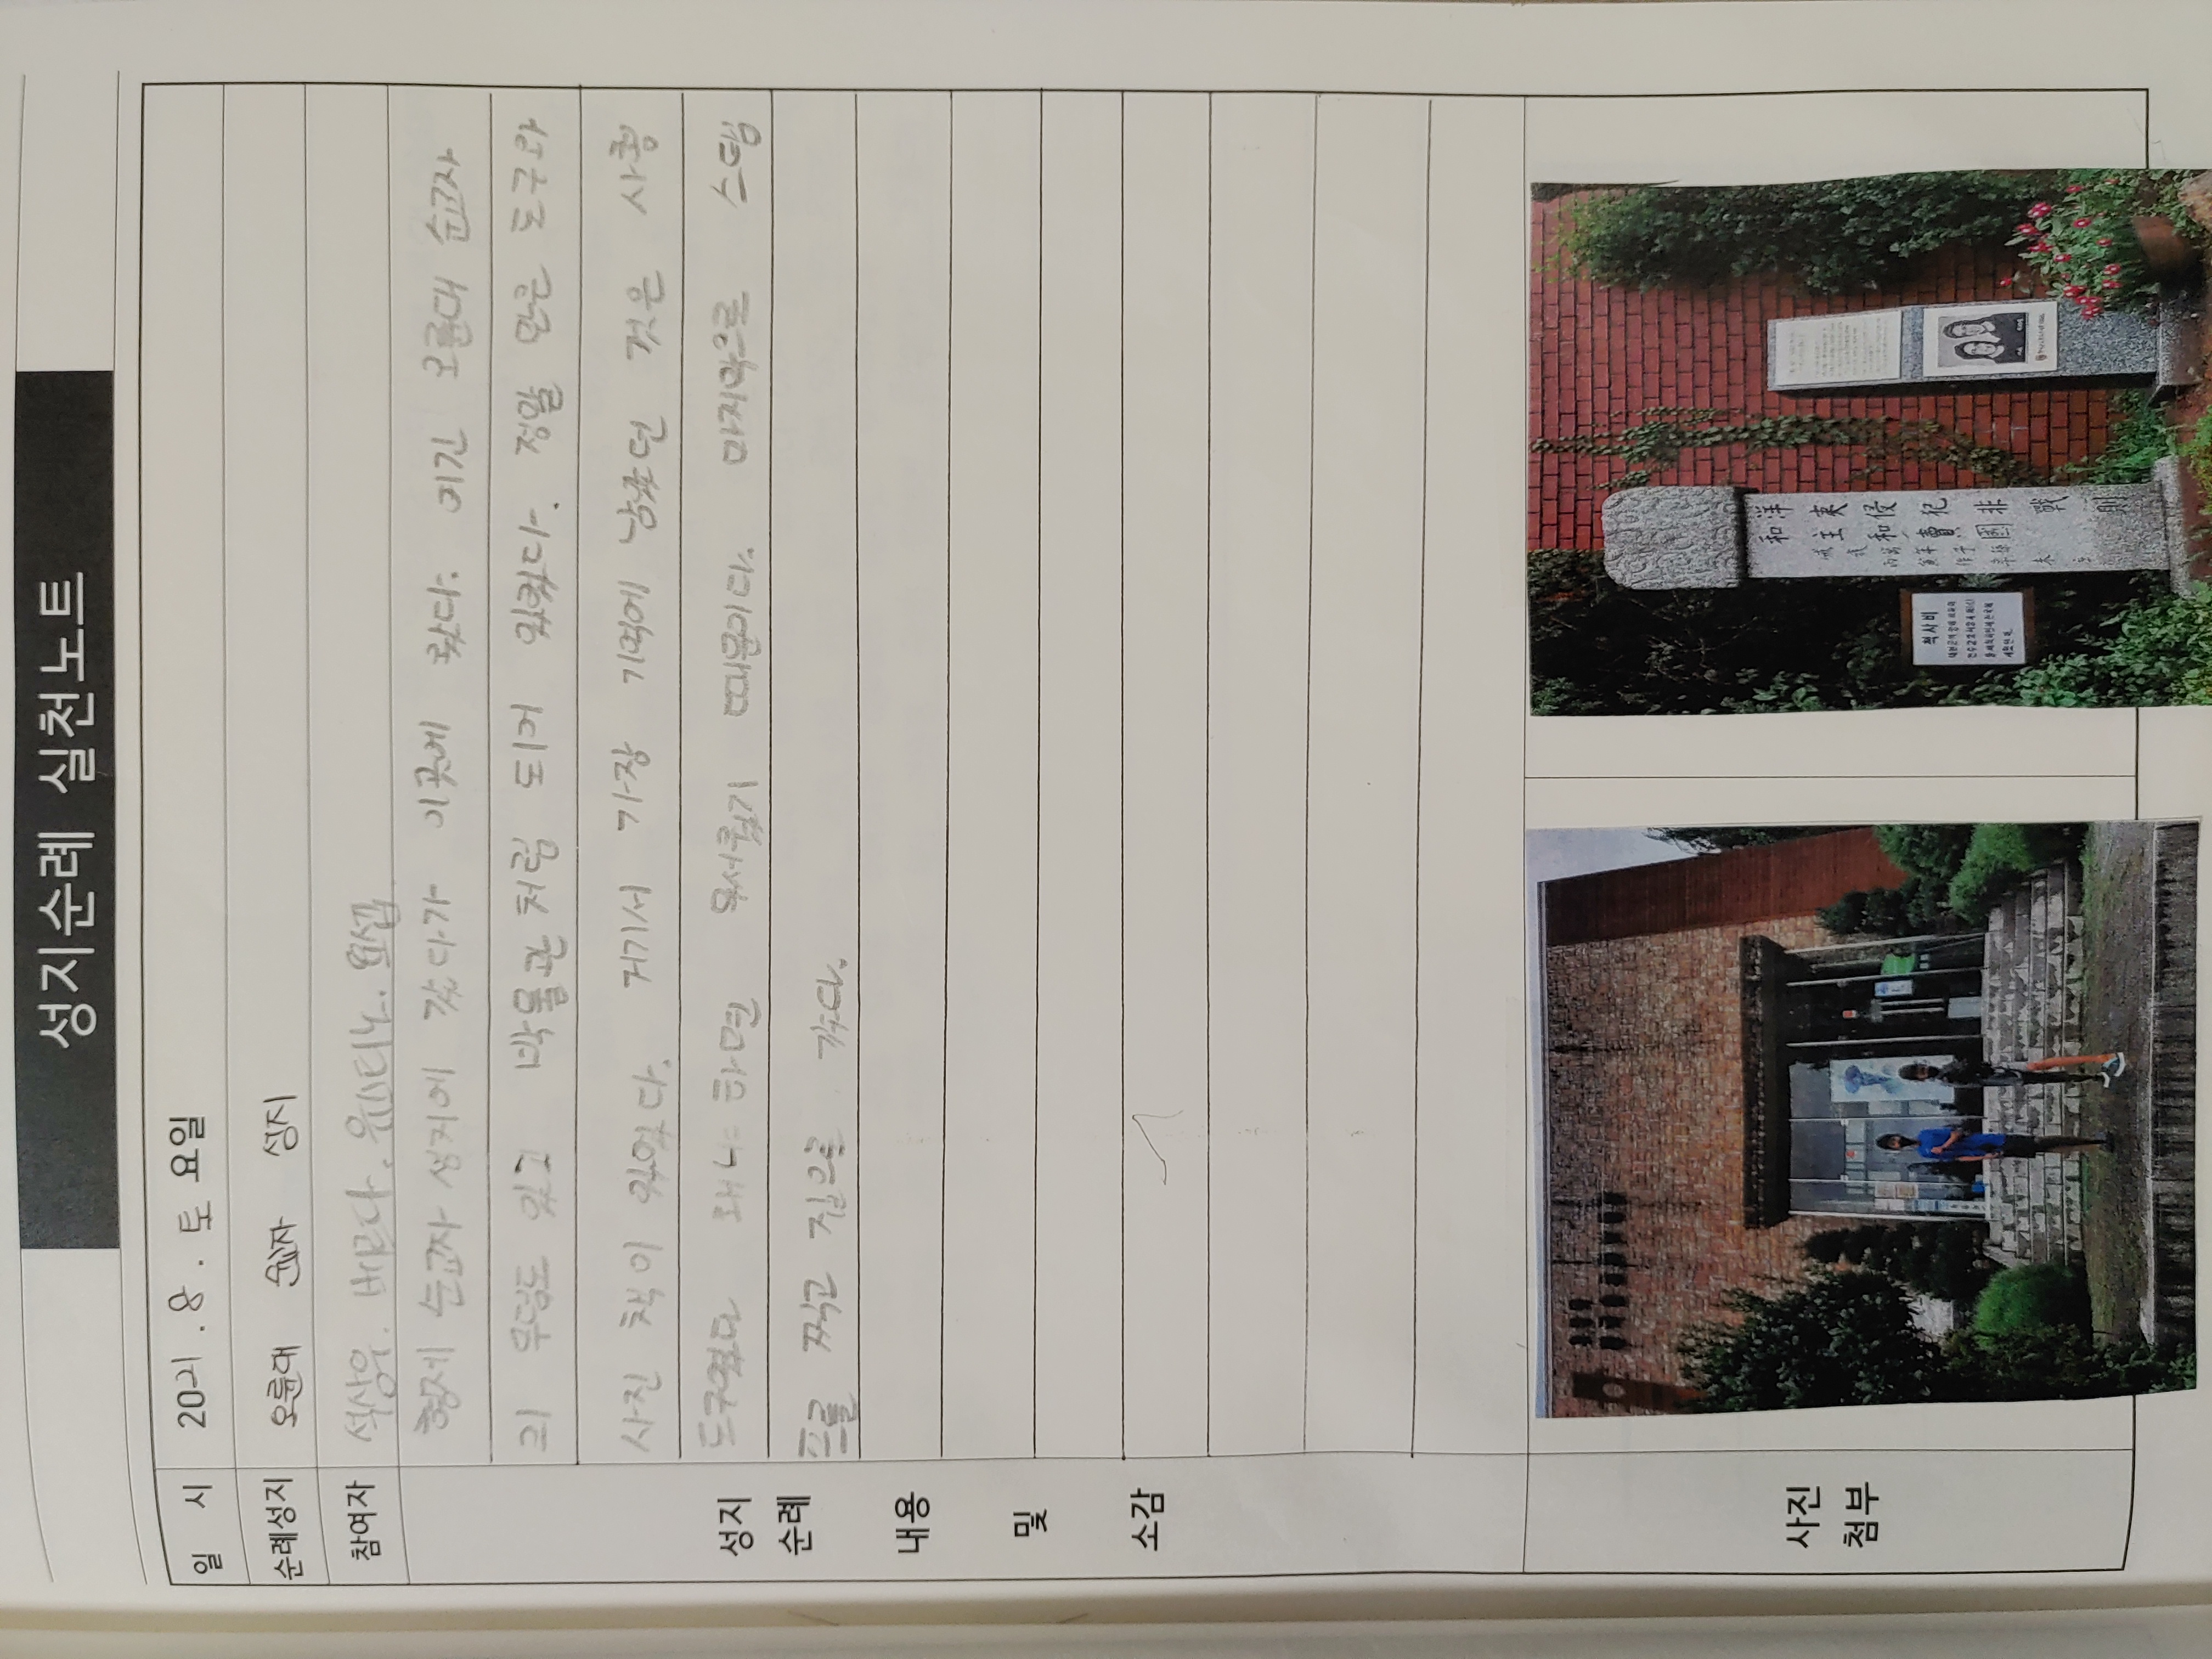 성지순례 실천노트
일 시
2021 . 8 . 토 요일
순례성지
오륜대 순교자 성지
참여자
석상우. 베르다. 유스티노. 요셉
형제 순교자 성지에 갔다가 이곳에 왔다. 여긴 오륜대 순교자
의 무덤도 있고 박물관처럼 되어 있었다. 정말 많은 도구와
사진 책이 있었다. 거기서 가장 기억에 남았던 것은 사형
도구였다 왜냐하면 무서웠기 때문이다. 마지막으로 스탬
프를 찍고 집으로 갔다.
성지
순례
내용
및
소감
사진
첨부
오륜대
척사비
洋夷侵犯非戰則
和主和賣國